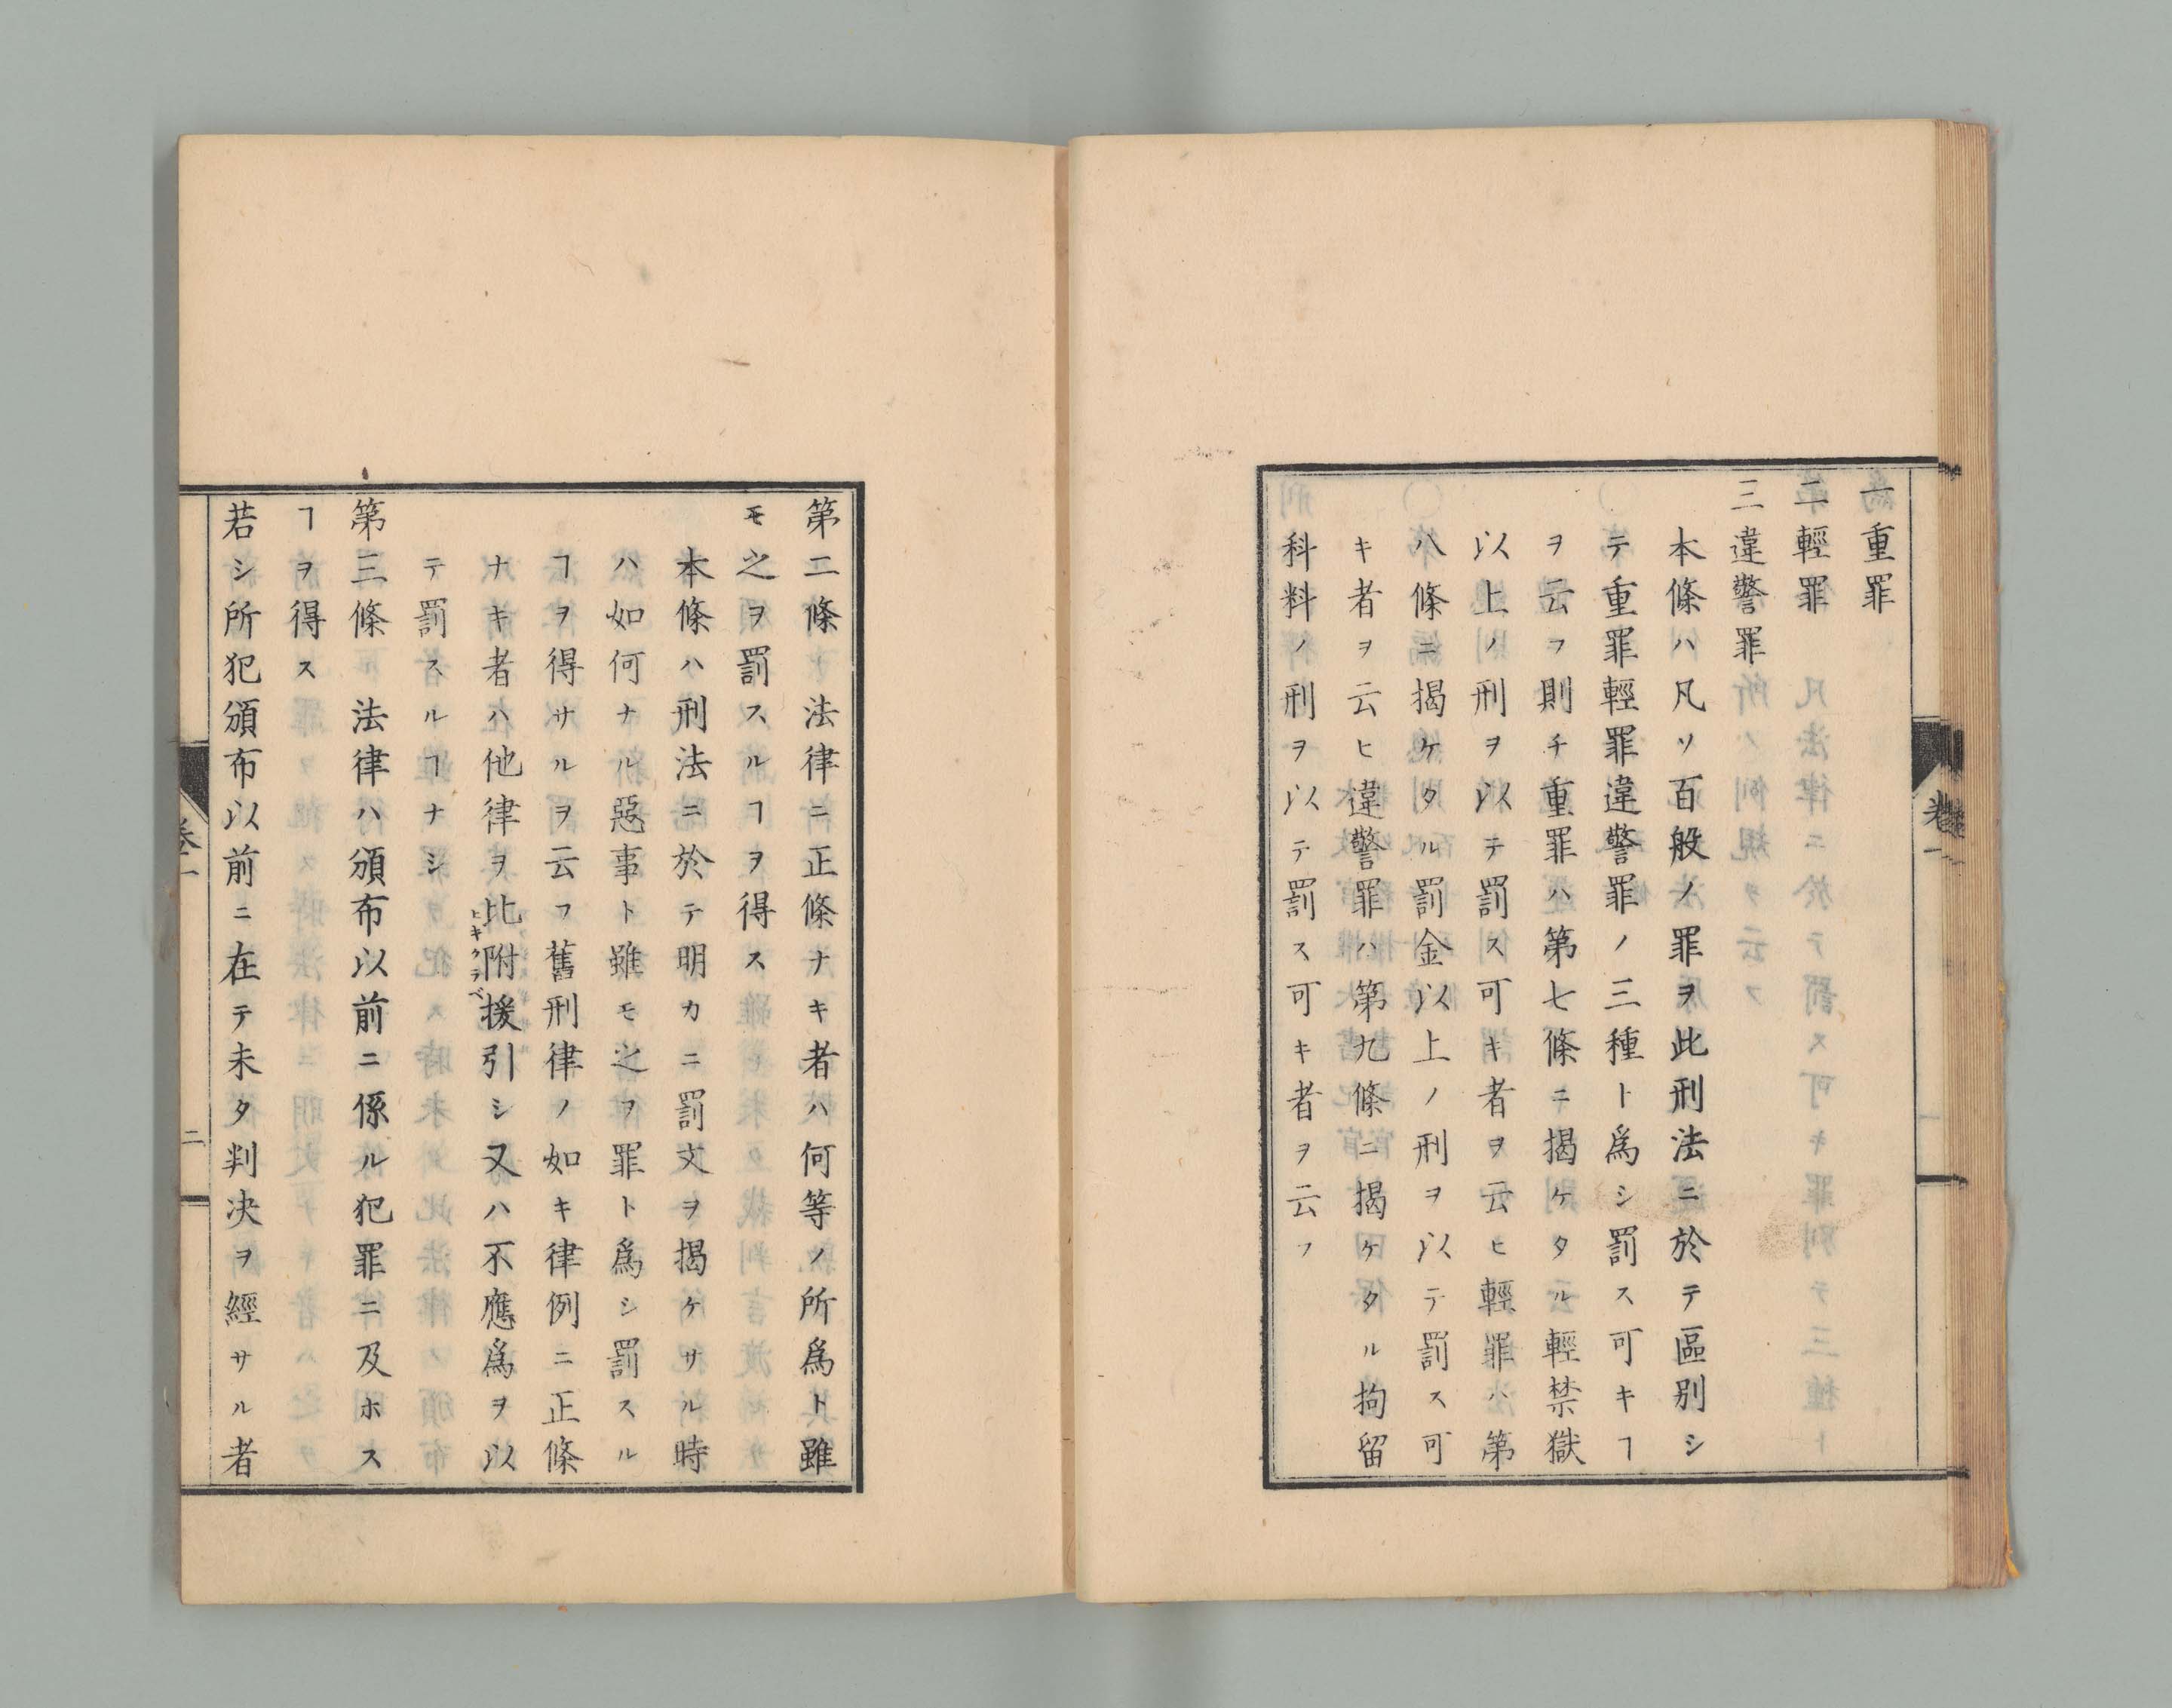 一重罪
二輕罪
三違警罪
本條ハ凡ソ百般ノ罪ヲ此刑法ニ於テ區別シ
テ重罪輕罪違警罪ノ三種ト爲シ罰ス可キヿ
ヲ云フ則チ重罪ハ第七條ニ揭ケタル輕禁獄
以上ノ刑ヲ以テ罰ス可キ者ヲ云ヒ輕罪ハ第
八條ニ揭ケタル罰金以上ノ刑ヲ以テ罰ス可
キ者ヲ云ヒ違警罪ハ第九條ニ揭ケタル拘留
科料ノ刑ヲ以テ罰ス可キ者ヲ云フ
第二條 法律ニ正條ナキ者ハ何等ノ所爲ト雖
モ之ヲ罰スルヿヲ得ス
本條ハ刑法ニ於テ明カニ罰文ヲ揭ケサル時
ハ如何ナル惡事ト雖モ之ヲ罪ト爲シ罰スル
ヿヲ得サルヲ云フ舊刑律ノ如キ律例ニ正條
ナキ者ハ他律ヲ比附援引シ又ハ不應爲ヲ以
ヒキクラベ
テ罰スルヿナシ
第三條 法律ハ頒布以前ニ係ル犯罪ニ及ホス
ヿヲ得ス
若シ所犯頒布以前ニ在テ未タ判决ヲ經サル者
卷一
二